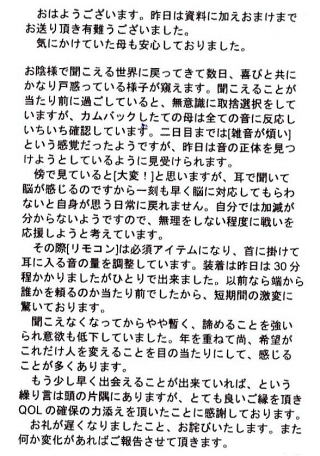 おはようございます。昨日は資料に加えおまけまで
お送り頂き有難うございました。
気にかけていた母も安心しておりました。
お陰様で聞こえる世界に戻ってきて数日、喜びと共に
かなり戸惑っている様子が窺えます。聞こえることが
当たり前に過ごしていると、無意識に取捨選択をして
いますが、カムバックしたての母は全ての音に反応し
いちいち確認しています。二日目までは[雑音が煩い]
という感覚だったようですが、昨日は音の正体を見つ
けようとしているように見受けられます。
傍で見ていると[大変!]と思いますが、耳で聞いて
脳が感じるのですから一刻も早く脳に対応してもらわ
ないと自身が思う日常に戻れません。自分では加減が
分からないようですので、無理をしない程度に戦いを
応援しようと考えています。
その際[リモコン]は必須アイテムになり、首に掛けて
耳に入る音の量を調整しています。装着は昨日は30分
程かかりましたがひとりで出来ました。以前なら端から
誰かを頼るのが当たり前でしたから、短期間の激変に
驚いております。
聞こえなくなってからやや暫く、諦めることを強い
られ意欲も低下していました。年を重ねて尚、希望が
これだけ人を変えることを目の当たりにして、感じる
ことが多くあります。
もう少し早く出会えることが出来ていれば、という
繰り言は頭の片隅にありますが、とても良いご縁を頂き
QOLの確保の力添えを頂いたことに感謝しております。
お礼が遅くなりましたこと、お詫びいたします。また
何か変化があればご報告させて頂きます。